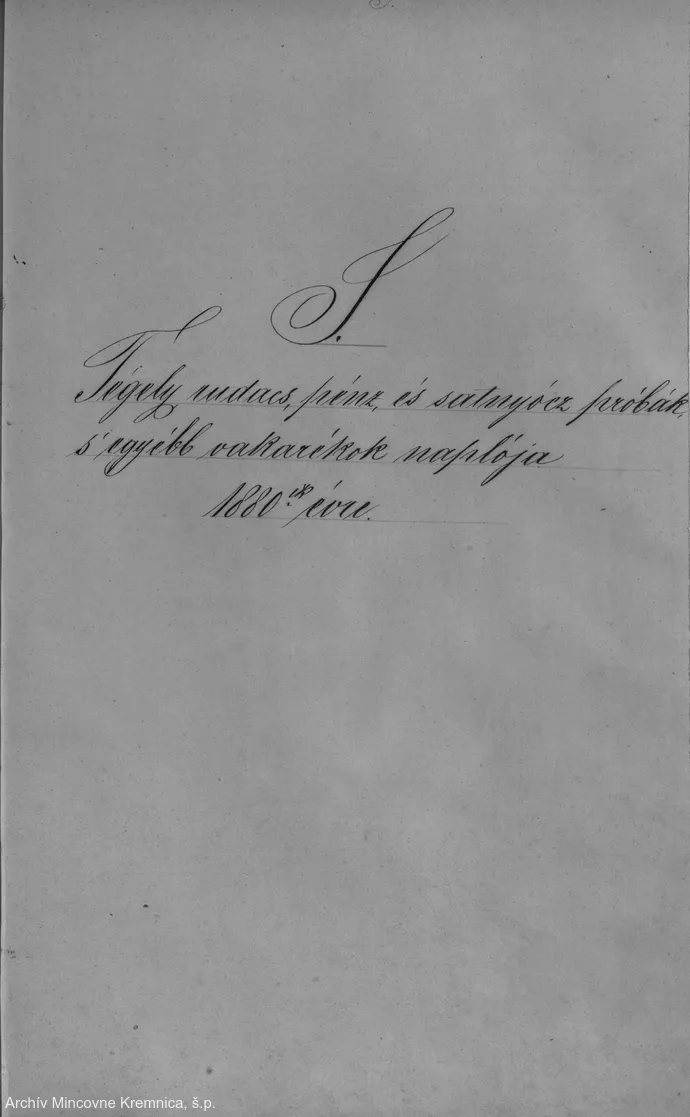 S.
Tégely rudacs, pénz, és satnyócz próbák,
s' egyébb vakarékok naplója
1880.ik évre.
Archív Mincovne Kremnica, š.p.